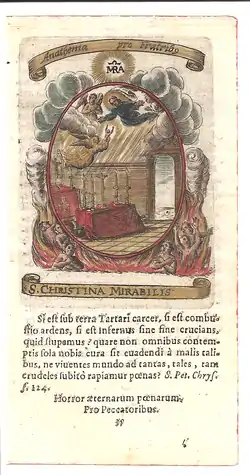 Anathema pro Fratribꝰ
MRA
S. CHRISTINA MIRABILIS
Si est sub terra Tartari carcer, si est combu-
stio ardens, si est Infernus sine fine crucians,
quid stupamus? quare non omnibus contem-
ptis sola nobis cura sit euadendi à malis tali-
bus, ne viventes mundo ad tantas, tales, tam
crudeles subitò rapiamur pœnas? S. Pet. Chrys.
s. 124.
Horror æternarum pœnarum.
Pro Peccatoribus.
6